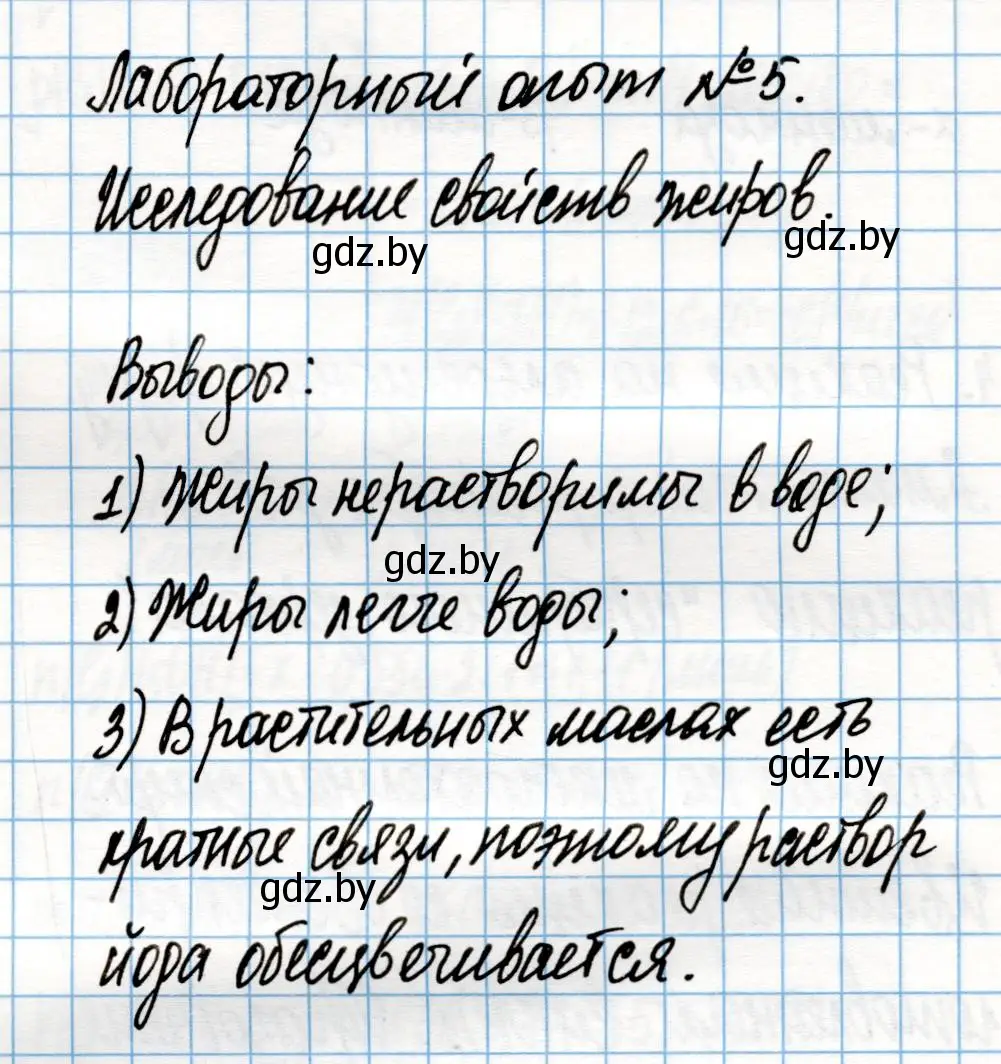 Лабораторный опыт №5.
Исследование свойств жиров.
gdz.by
gdz.by
Выводы:
1) Жиры нерастворимы в воде;
gdz.by
2) Жиры легче воды;
3) В растительных маслах есть
gdz.by
кратные связи, поэтому раствор
gdz.by
йода обесцвечивается.